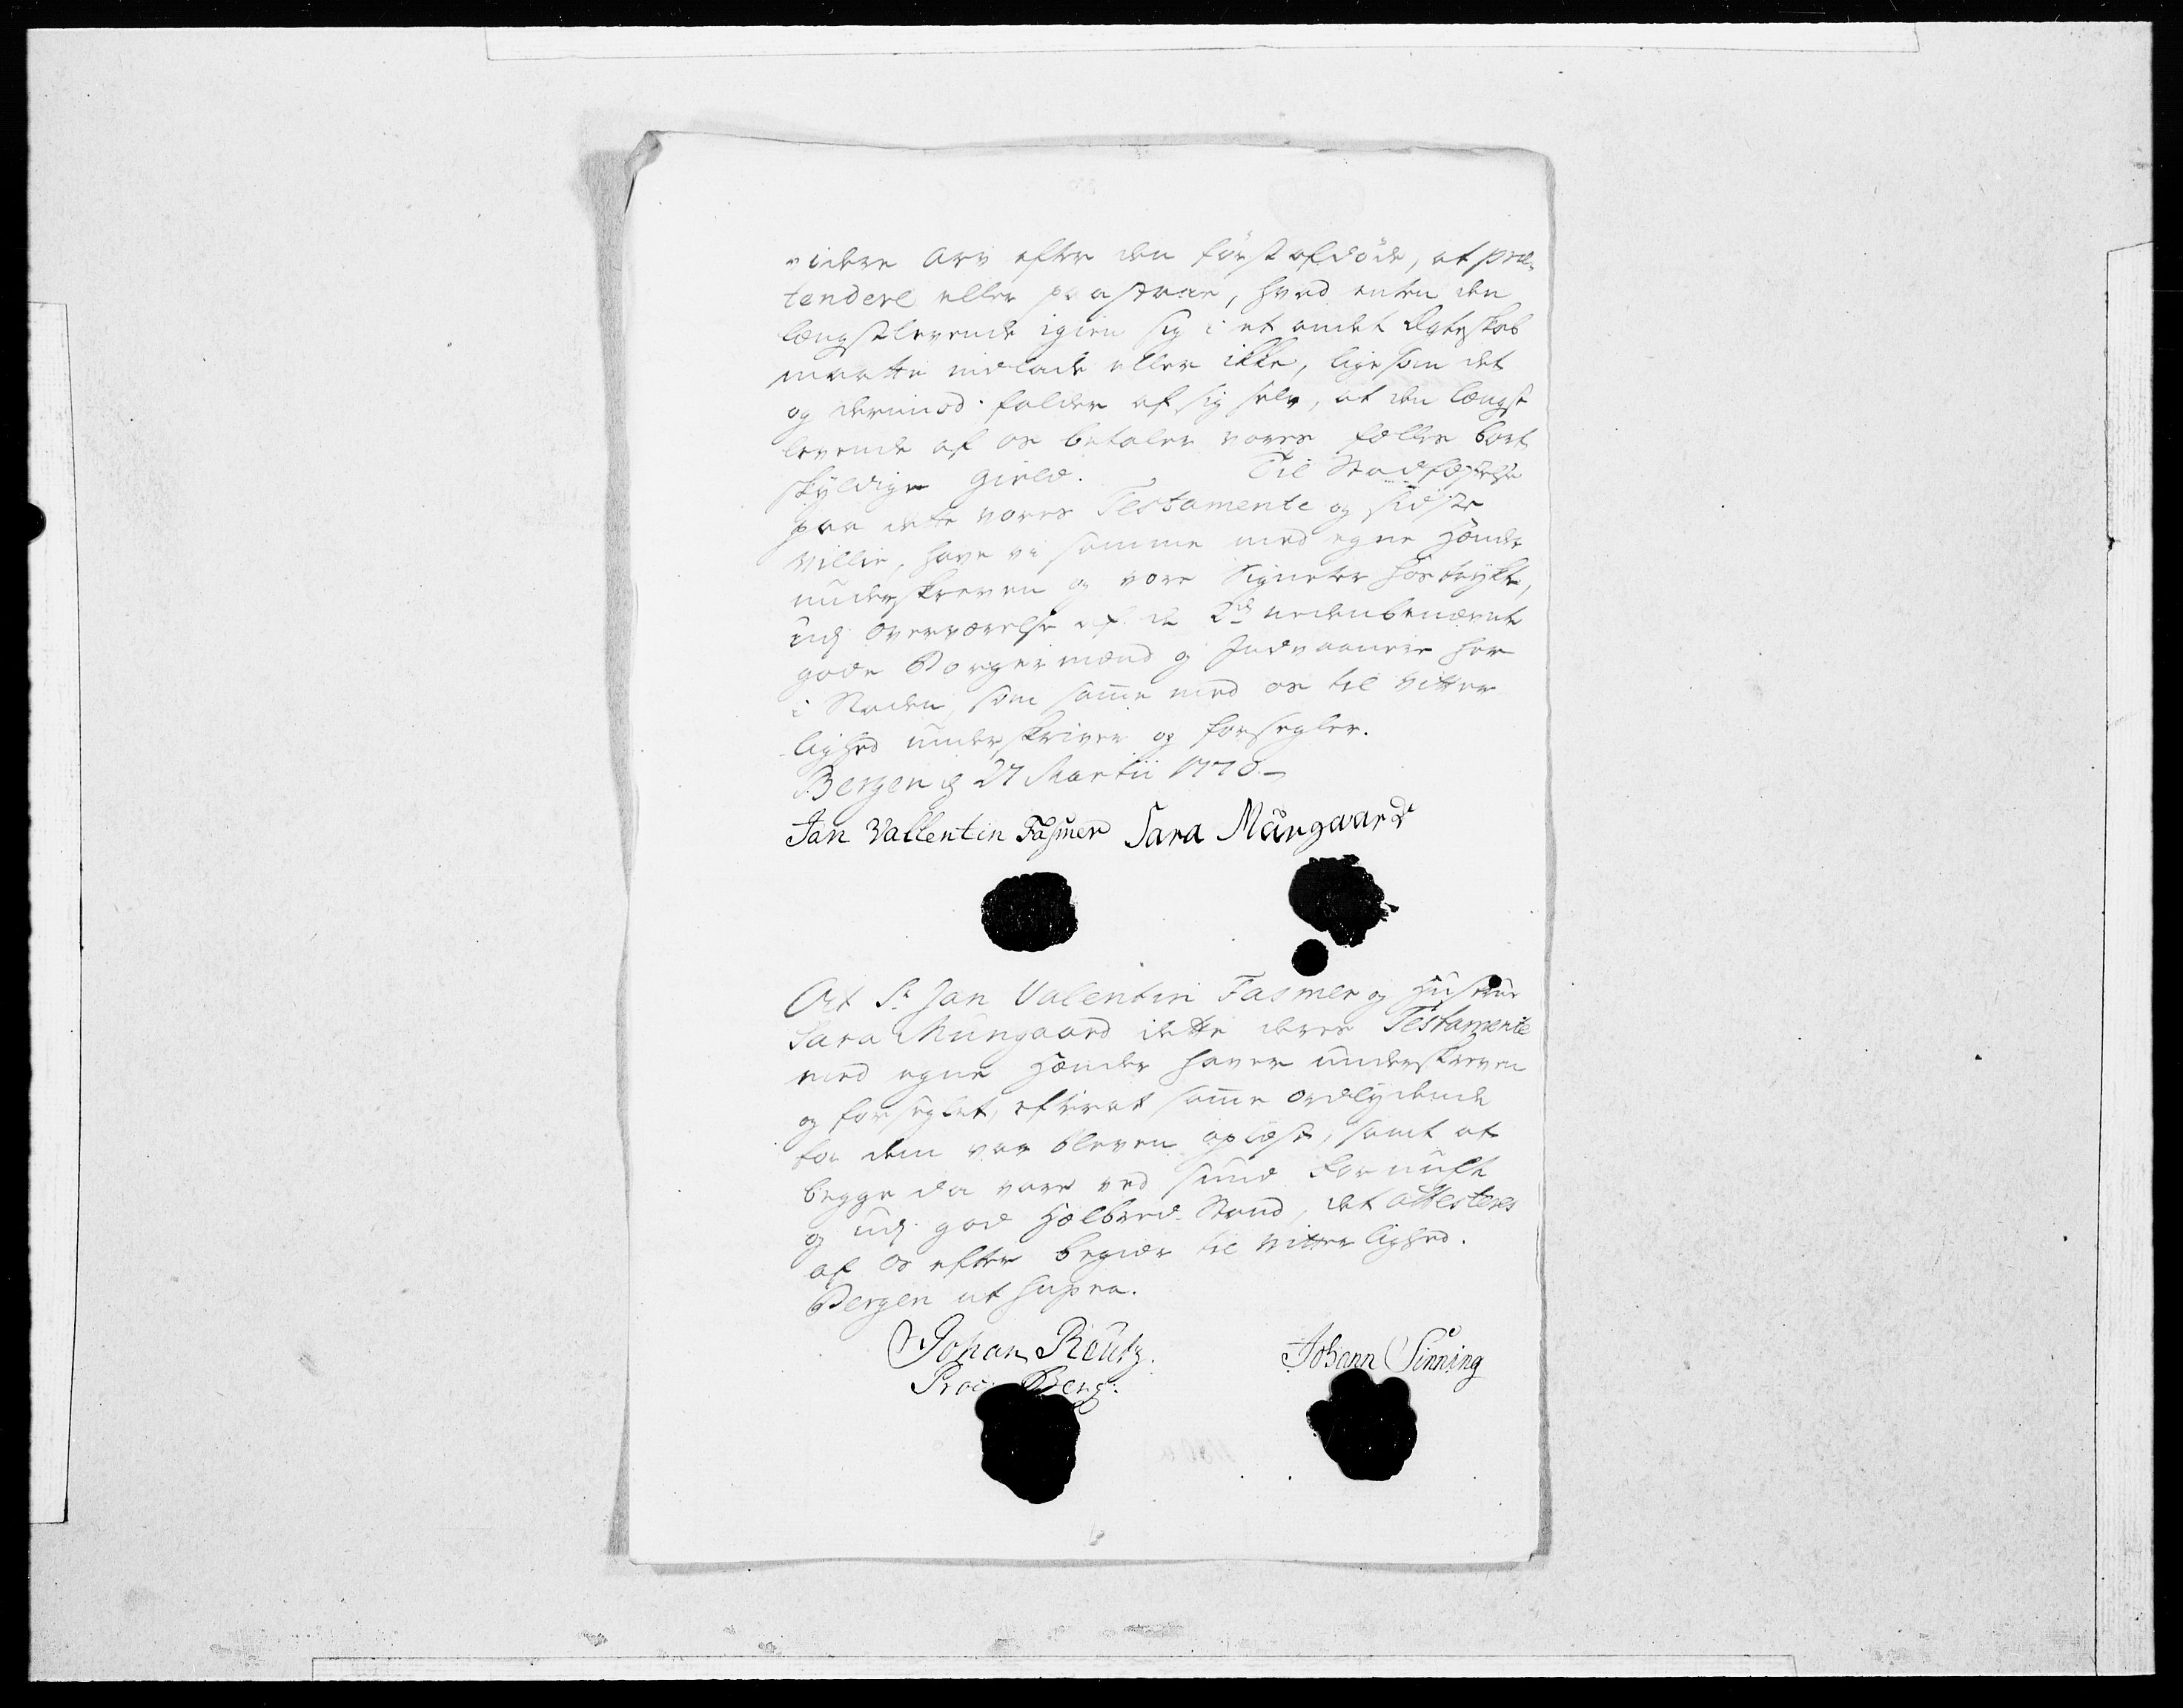 videre Arv efter den först afdöde, at præ-
tendere eller paastaae, hvad enten den
længstlevende igien sig i et andet Ægteskab
maatte indlade eller ikke, ligesom det
og derimod falder af sig selv, at den længst
levende af os betaler vores fælles bort
skyldige Gield. Til Stadfæstelse
paa dette vores Testamente og sidste
Villie, have vi samme med egne Hænder
underskreven og vore Signeter hostrykt,
udj Overværelse af de 2de nedenbenævnte
gode Borgermænd og Indvaanere her
i Staden, som same med os til Vitter
lighed underskriver og forsegler.
Bergen d 27 Martii 1770.
Jan Vallentin Fasmer Sara Mûngaard
At Sr Jan Valentin Fasmer og Hustrue
Sara Mûngaard dette deres Testamente
med egne Hænder haver underskreven
og forseglet, efterat same ordlydende
for dem var bleven oplæst, samt at
begge da vare ved sund Fornuft
og udj god Helbred-Stand, det attesteres
af os efter begiær til Vitterlighed.
Bergen ut supra.
Johan Reutz. Johann Sinning
Proc: Berg: